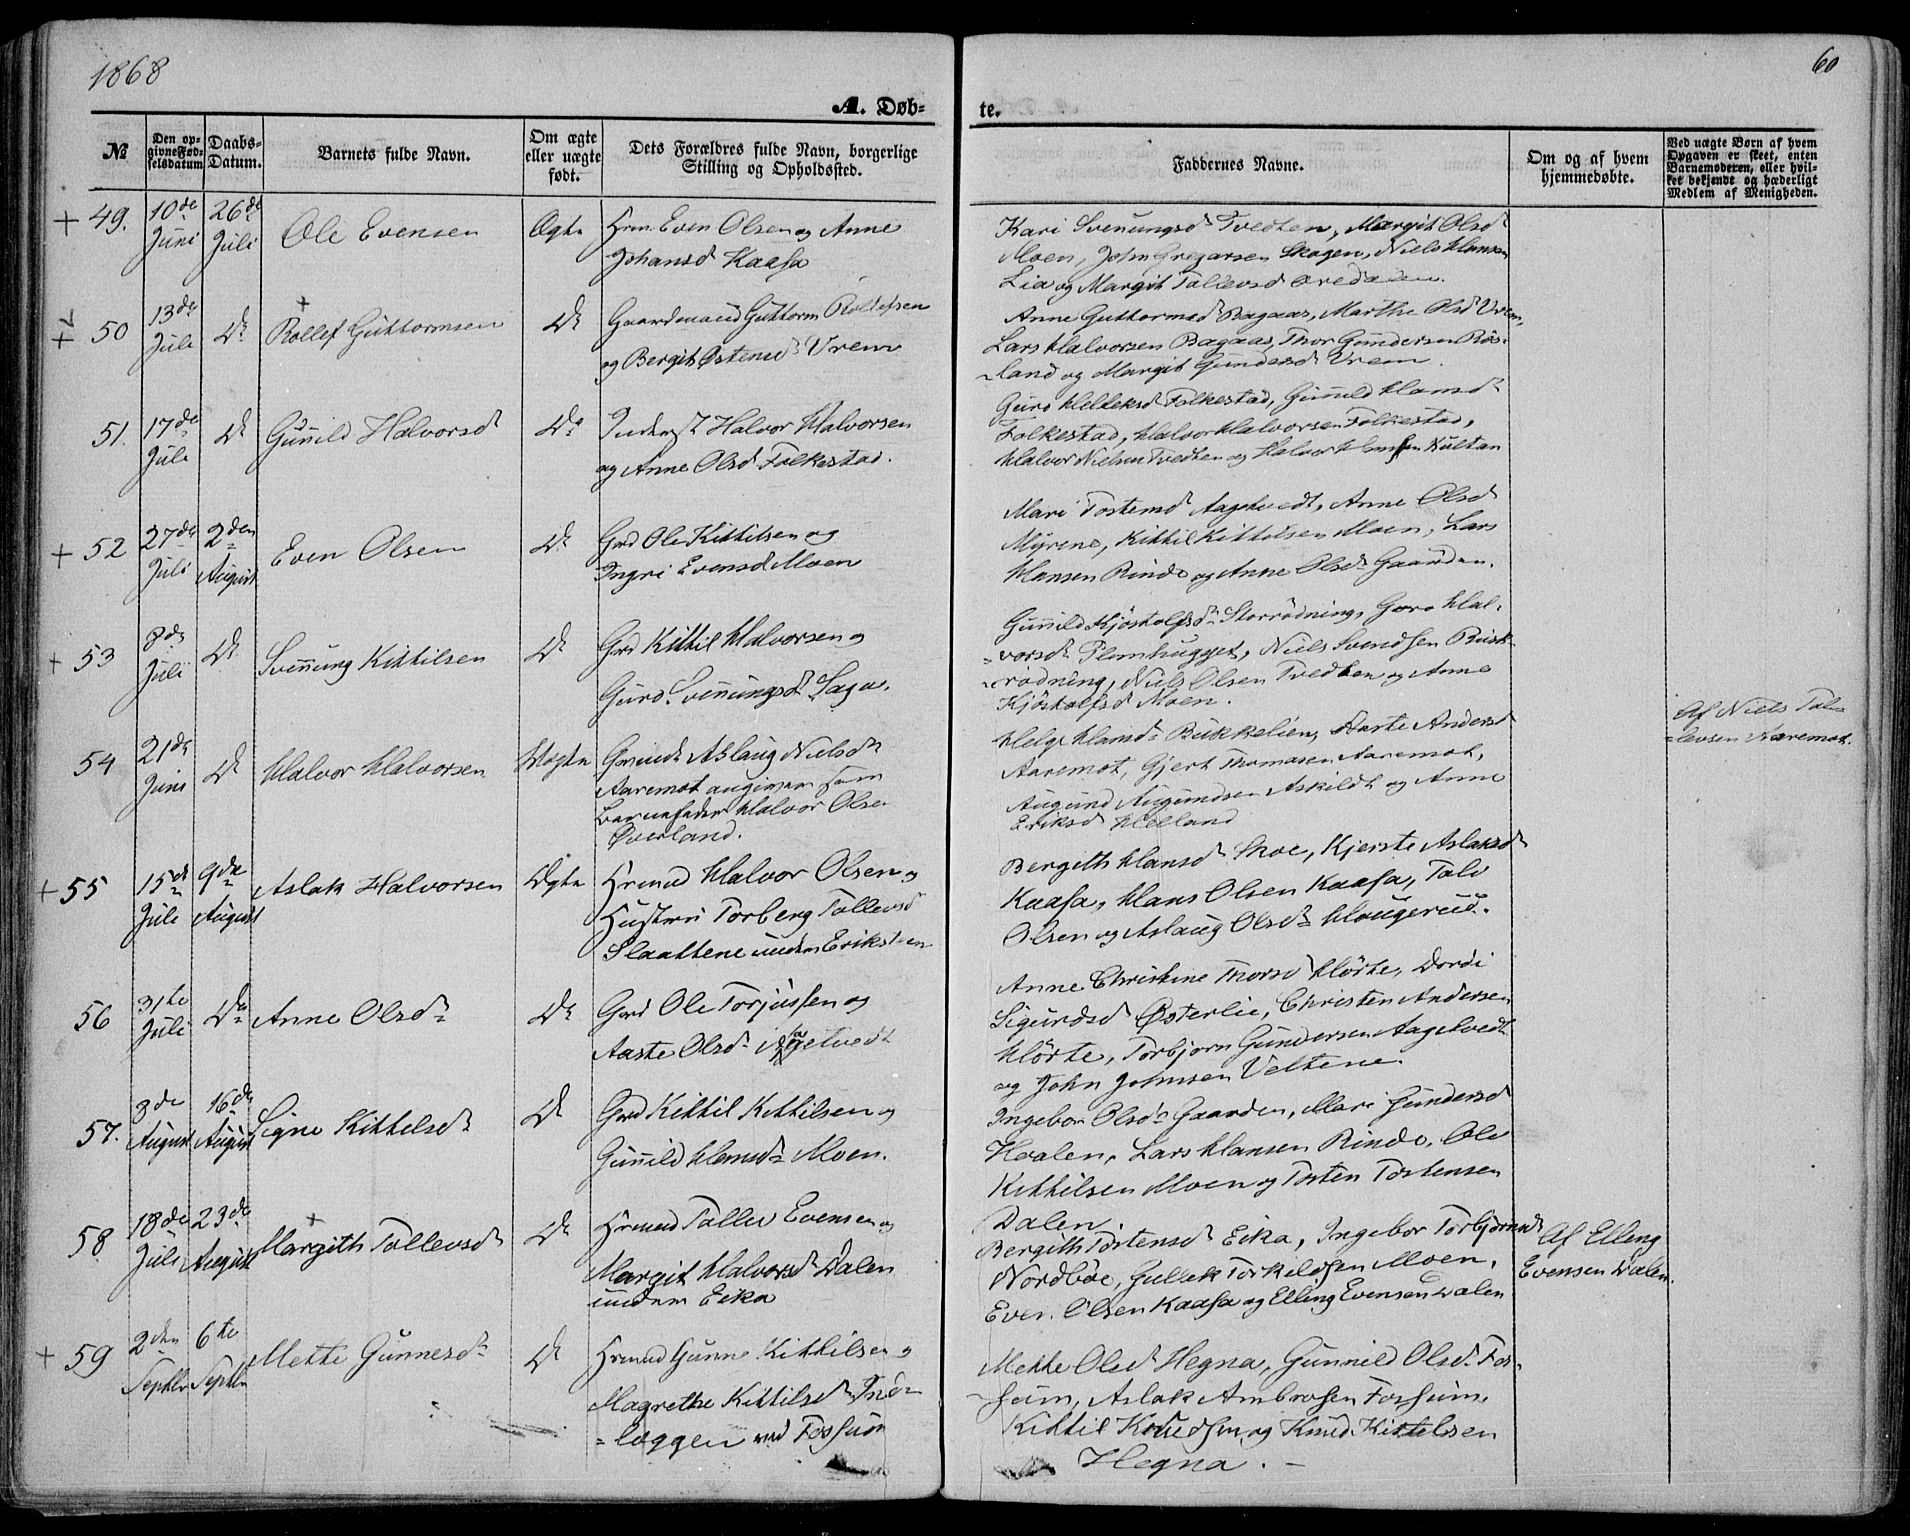 1868
60
A. Døb-
te.
№
Den op-
givne Fød-
selsdatum
Daabs-
Datum.
Barnets fulde Navn.
Om ægte
eller uægte
født.
Dets Forældres fulde Navn, borgerlige
Stilling og Opholdssted.
Faddernes Navne.
Om og af hvem
hjemmedøbte.
Ved uægte Børn af hvem
Opgaven er skeet, enten
Barnemoderen, eller hvil-
ket bekjendt og hæderligt
Medlem af Menigheden.
+ 49.
10de
Juni
26de
Juli
Ole Evensen
Ægte
Hrm. Even Olsen og Anne
Johansd Kaasa
Kari Svenungsd Tvedten, Margit Olsd
Moen, John Gregarsen Skogen, Niels Hansen
Lia og Margit Tollevsd
+ 50
13de
Juli
Do
Rollef Guttormsen
Do
Gaardmand Guttorm Rollefsen
og Bergit Østensd Vrem
Anne Guttormsd Bagaas, Marthe Olsd Vrem,
Lars Halvorsen Bagaas, Thor Gundersen Røs-
land og Margit Gundersd Vrem.
51.
17de
Juli
Do
Gunild Halvorsd
Do
Inderst Halvor Halvorsen
og Anne Olsd Folkestad.
Guro Kelleksd Folkestad, Gunild Hansd
Folkestad, Halvor Halvorsen Folkestad,
Halvor Nielsen Tvedten og Halvor Hansen Kultan
+ 52
27de
Juli
2den
August
Even Olsen
Do
Grd Ole Kittilsen og
Ingri Evensd Moen
Mari Tostensd Aagetvedt, Anne Olsd
Myrene, Kittil Kittilsen Moen, Lars
Hansen Rinde og Anne Olsd Gaarden.
+ 53
8de
Juli
Do
Svennung Kittilsen
Do
Grd Kittil Halvorsen og
Guro Svennungsd Saga.
Gunild Kjøstolfsd Storrødning, Guro Hal-
vorsd Plomhugget, Niels Svendsen Busk-
rødning, Niels Olsen Tvedten og Anne
Kjøstolfsd Moen.
54
21de
Juni
Do
Halvor Halvorsen
Uægte
Aslaug Nielsd
Aaremot angiven som
Barnefader Halvor Olsen
Øverland.
Helge Hansd Bukkelien, Aaste Andersd
Aaremot, Gjert Thomasen Aaremot,
Augund Augundsen Askildt og Anne
Eriksd Helland
Af Niels Tol-
levsen Aaremot.
+ 55
15de
Juli
9de
August
Aslak Halvorsen
Ægte
Hrmnd Halvor Olsen og
Hustru Torberg Tollevsd
Slaattene under Eriksteen
Bergith Hansd Moe, Kjerste Aslaksd
Kaasa, Hans Olsen Kaasa, Talo
Olsen og Aslaug Olsd Haugerud.
56
31te
Juli
Do
Anne Olsd
Do
Grd Ole Torjussen og
Aaste Olsd Aagetvedt
Anne Christine Thorsd Hørte, Dordi
Sigurdsd Østerlie, Christen Andersen
Hørte, Torbjørn Gundersen Aagetvedt
og John Johnsen Veltene.
57.
3de
August
16de
August
Signe Kittelsd
Do
Grd Kittil Kittilsen og
Gunild Hansd Moen.
Ingebor Olsd Gaarden, Mari Gundersd
Hvalen, Lars Hansen Rinde, Ole
Kittilsen Moen og Tosten Tostensen
Dalen.
58
18de
Juli
23de
August
Margith Tollevsd
Do
Hrmnd Tollev Evensen og
Margit Halvorsd Dalen
under Eika
Bergith Tostensd Eika, Ingebor Torbjørnsd
Nordbøe, Gullek Torkildsen Moen,
Even Olsen Kaasa og Elling Evensen Dalen
Af Elling
Evensen Dalen.
+ 59
2den
Septbr
6te
Septbr
Mette Gunnersd
Do
Hrmnd Gunne Kittilsen og
Magrethe Kittilsd Ind-
læggen ved Fossum
Mette Olsd Hegna, Gunnild Olsd Fos-
sum, Aslak Ambrosen Fossum,
Kittil Knudsen og Knud Kittelsen
Hegna.